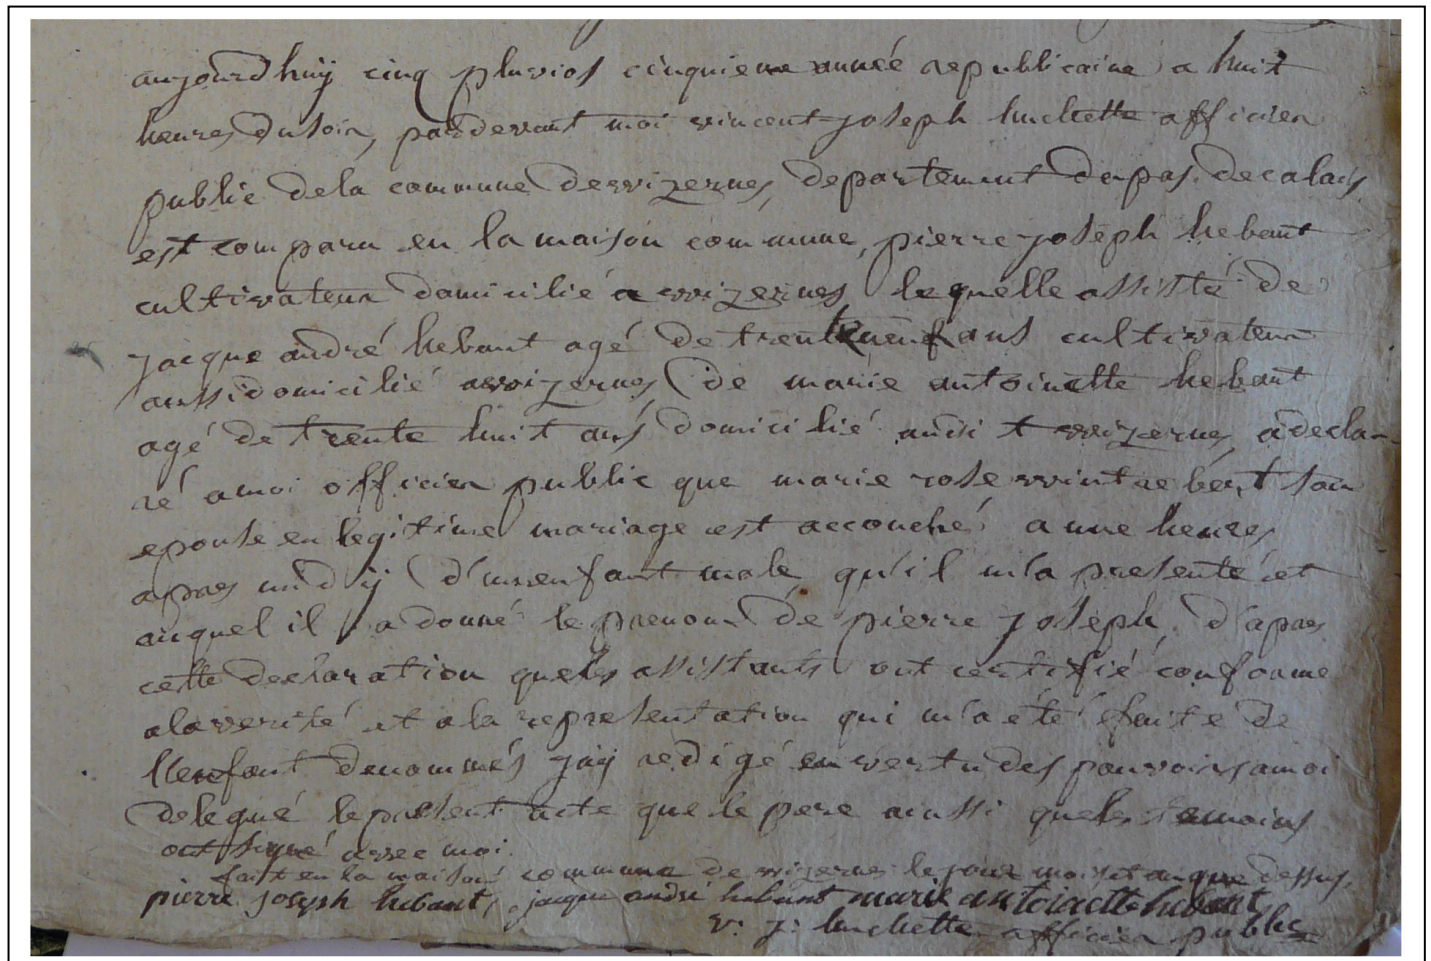 aujourdhuÿ cinq pluvios cinquieme année republicaine a huit
heures du soir, pardevant moi vincent-joseph huchette officier
public dela commune devvizernes, departement du pas. de calais,
est comparu en la maison commune, pierre joseph hebant
cultivateur domicilié a vvizernes lequelle assisté de
jacque andré hebant agé de trente neuf ans cultivateur
aussi domicilié avvizernes, de marie antoinette hebant
agé de trente huit ans domicilié aussi vvizernes, a decla-
ré a moi officier public que marie rose vvintrebert son
epouse en legitime mariage est accouché a une heures
apres midÿ d'un enfant male qu'il m'a presenté et
auquel il a donné le prenom de pierre joseph, d'apres
cette declaration que les assistants ont certifié conforme
ala verité et a la representation qui m'a été faité de
l'enfant denommés jaÿ redigé en vertu des pouvoirs amoi
delegué le present acte que le pere aussi que les temoins
ont signé avec moi.
fait en la maison commune de wizerne le jour mois et an que dessus.
pierre joseph hebant, jacque andré hebant marie antoinette hebant
v: j: huchette officier public